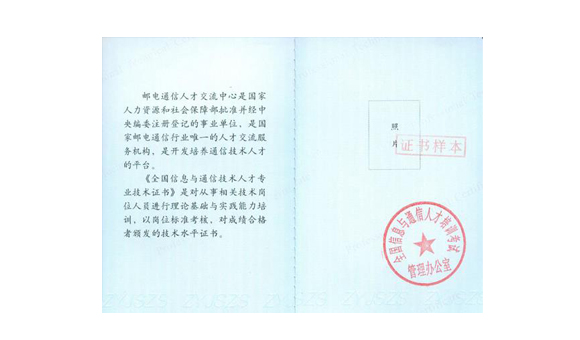 邮电通信人才交流中心是国家
人力资源和社会保障部批准并经中
央编委注册登记的事业单位，是国
家邮电通信行业唯一的人才交流服
务机构，是开发培养通信技术人才
的平台。
《全国信息与通信技术人才专
业技术证书》是对从事相关技术岗
位人员进行理论基础与实践能力培
训，以岗位标准考核，对成绩合格
者颁发的技术水平证书。
照
片
证书样本
全国信息与通信人才培训考试
管理办公室